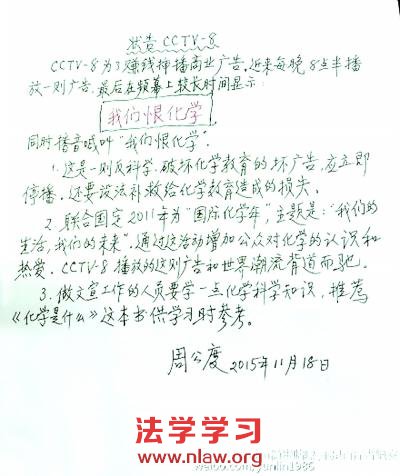 状告CCTV-8
CCTV-8为了赚钱掙播商业广告.近来每晚8点半播
放一则广告,最后在频幕上较长时间显示:
我们恨化学
同时播音喊叫“我们恨化学”.
1.这是一则反科学,破坏化学教育的坏广告,应立即
停播.还要设法补救给化学教育造成的损失.
2.联合国定2011年为“国际化学年”,主题是:“我们的
生活,我们的未来”.通过这活动增加公众对化学的认识和
热爱.CCTV-8播放的这则广告和世界潮流背道而驰.
3.做文宣工作的人员要学一点化学科学知识,推荐
《化学是什么》这本书供学习时参考。
周公度 2015年11月18日
法学学习
www.nlaw.org
weibo.com/yunlin1986